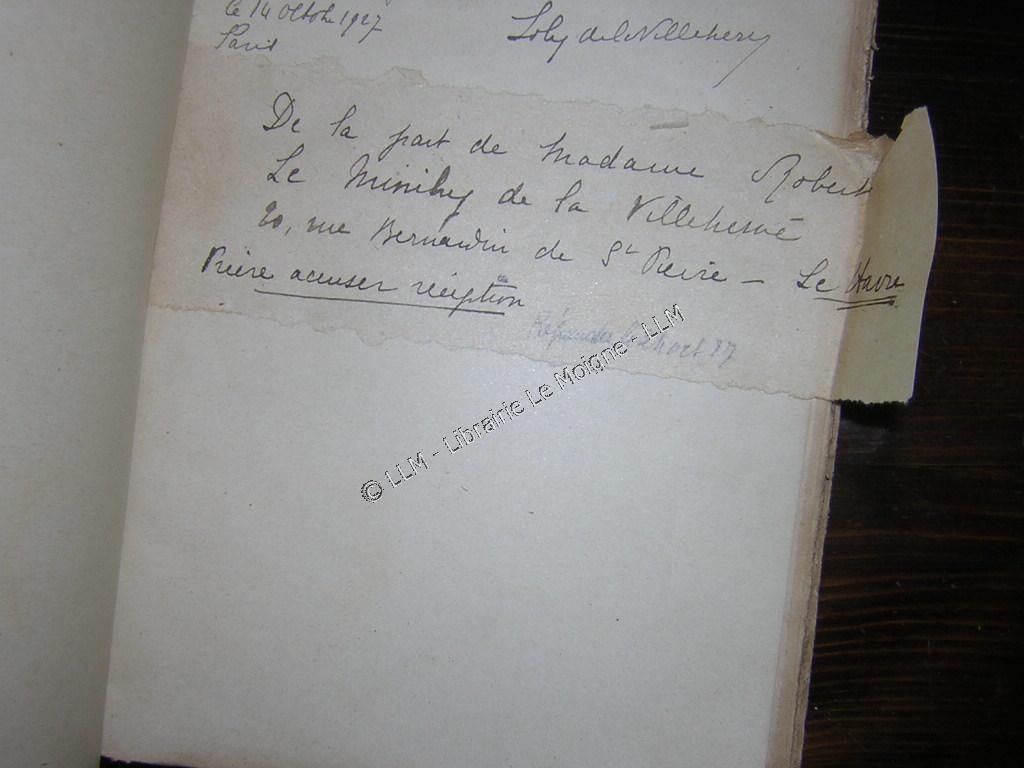 le 14 octobre 1927
Paris
Loby de la Villehervé
De la part de Madame Robert
Le Minihy de la Villehervé
20, rue Bernardin de St Pierre – Le Havre
Prière accuser réception
oct 27
© LLM - Librairie Le Moigne - LLM